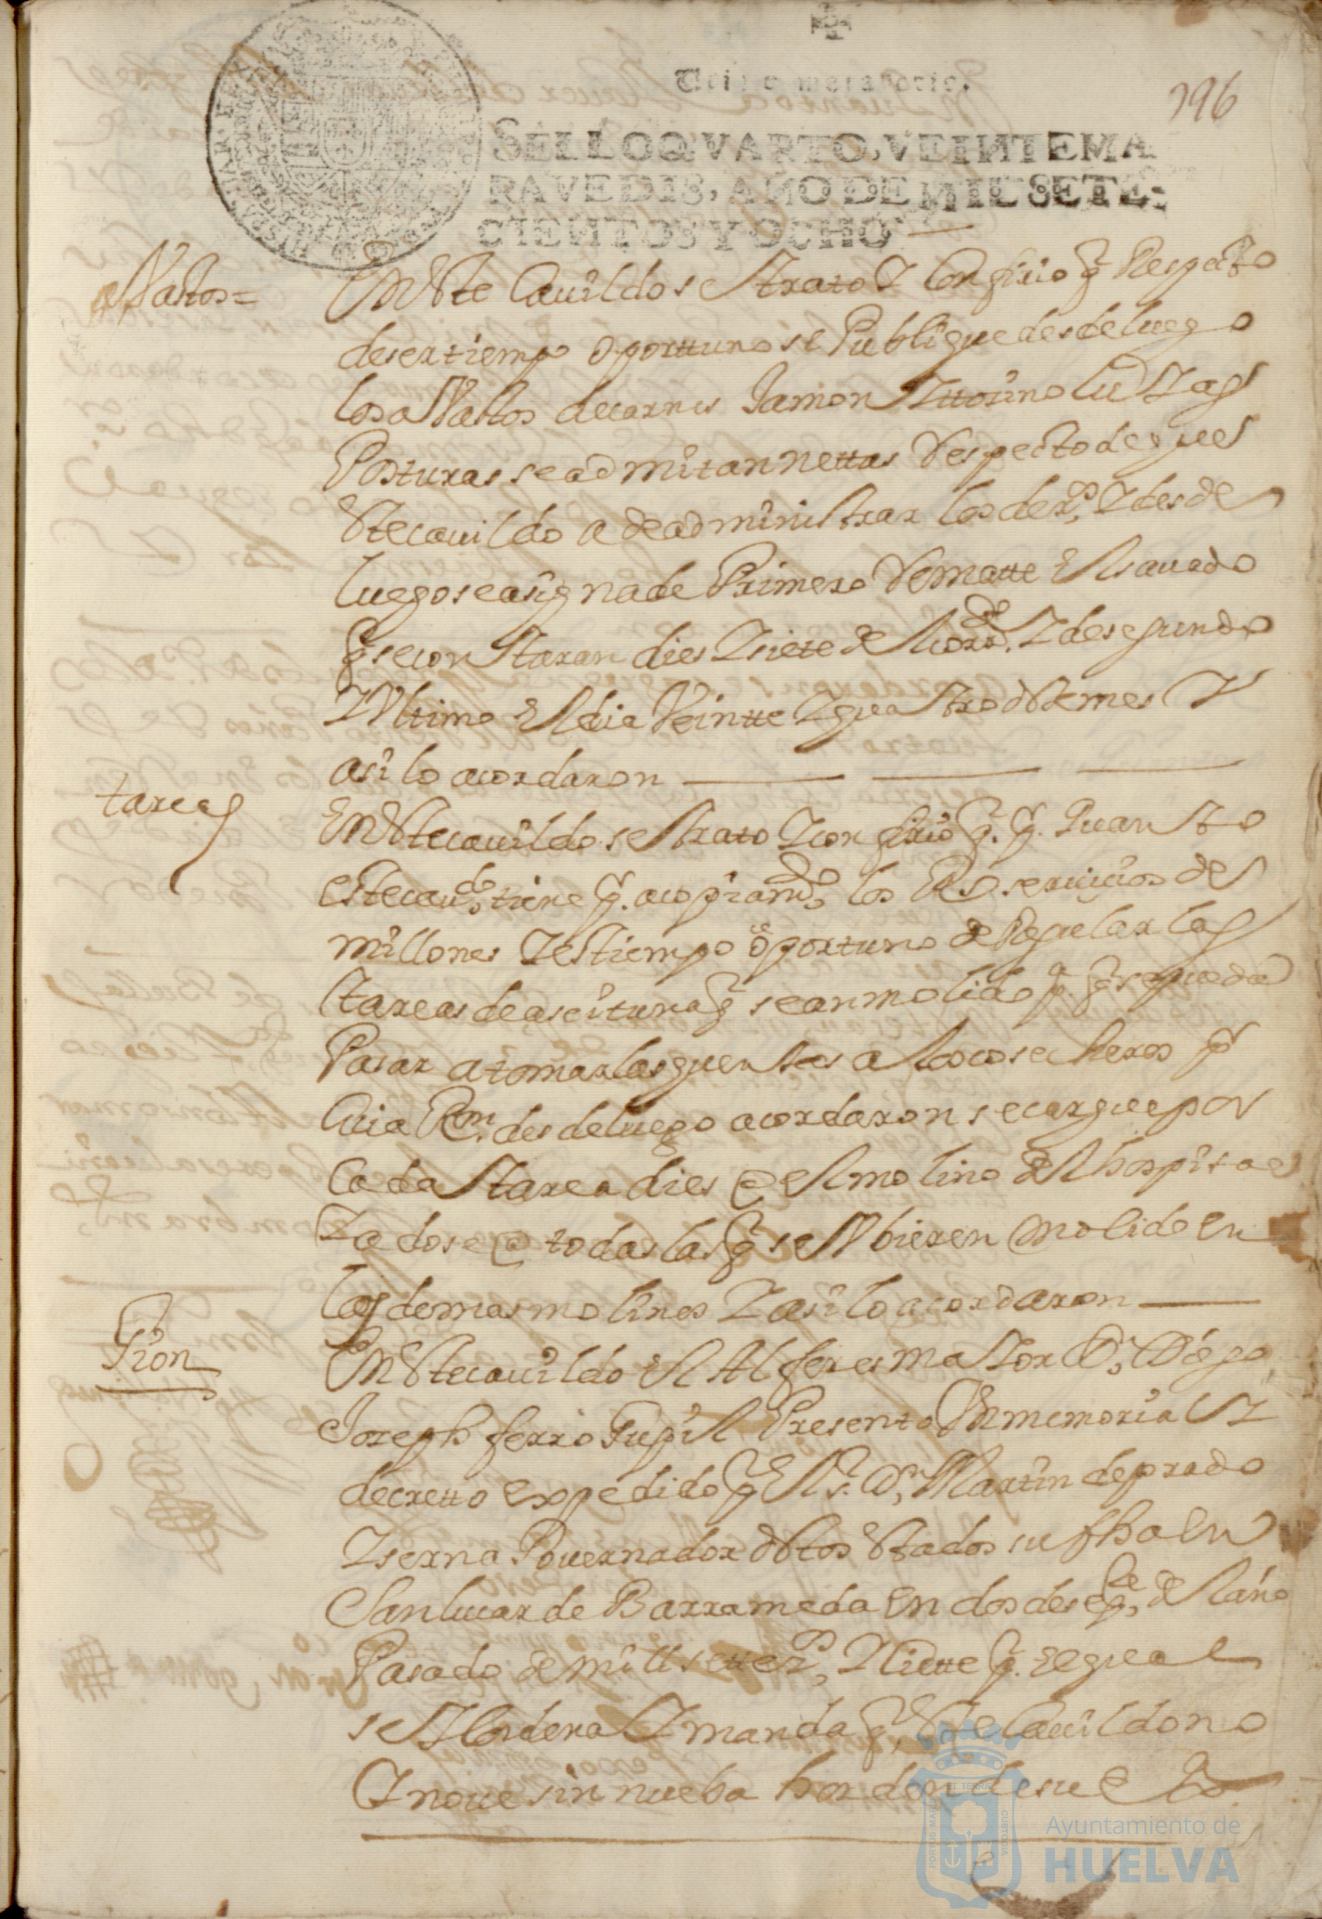 196
SELLO QVARTO, VEINTE MA
RAVEDIS, AÑO DE MIL SETE-
CIENTOS Y OCHO
En este Cauildo se trato y Confirio q Respecto
de ser tiempo oportuno se Publique desde luego
los abastos de carnes Jamon y ttosino cu Yas
Posturas se admitan nettas Respecto de q ues
este cauildo a de administrar los der.os Y desde
luego se asigna de Primero Remate el sauado
q se contaran dies Y siete de el Corr.te Y de segundo
Y Vltimo el dia Veintte Y quatro deste mes Y
asi lo acordaron
tareas
En este cauildo se trato Y confirio q. q. Quanto
este cau.do tiene q. acopiam.to los R.s seruicios de
millones Y es tiempo oportuno de Regular las
tareas de aseituna q se an molido p. q se pueda
Pasar a tomar las quentas a los cosecheros p
Cuia Rn. desde luego acordaron se cargue por
Cada tarea dies @ el molino del hospital
Y a dose @ todas las q se Vbieren molido en
los demas molinos Y asi lo acordaron
En este cauildo el Alferes maior D. Diego
Joseph ferro Presento Vn memorial Y
decretto expedido p el S.r D.n Martin de prado
Y serna Gouernador destos estados su fha en
San lucar de Barrameda en dos de del año
Pasado de mill settez.os Y siette p. el qual
se Hordena Y manda q este Cauildo no
Ynoue sin nueba horden de su e
Ayuntamiento de
HUELVA